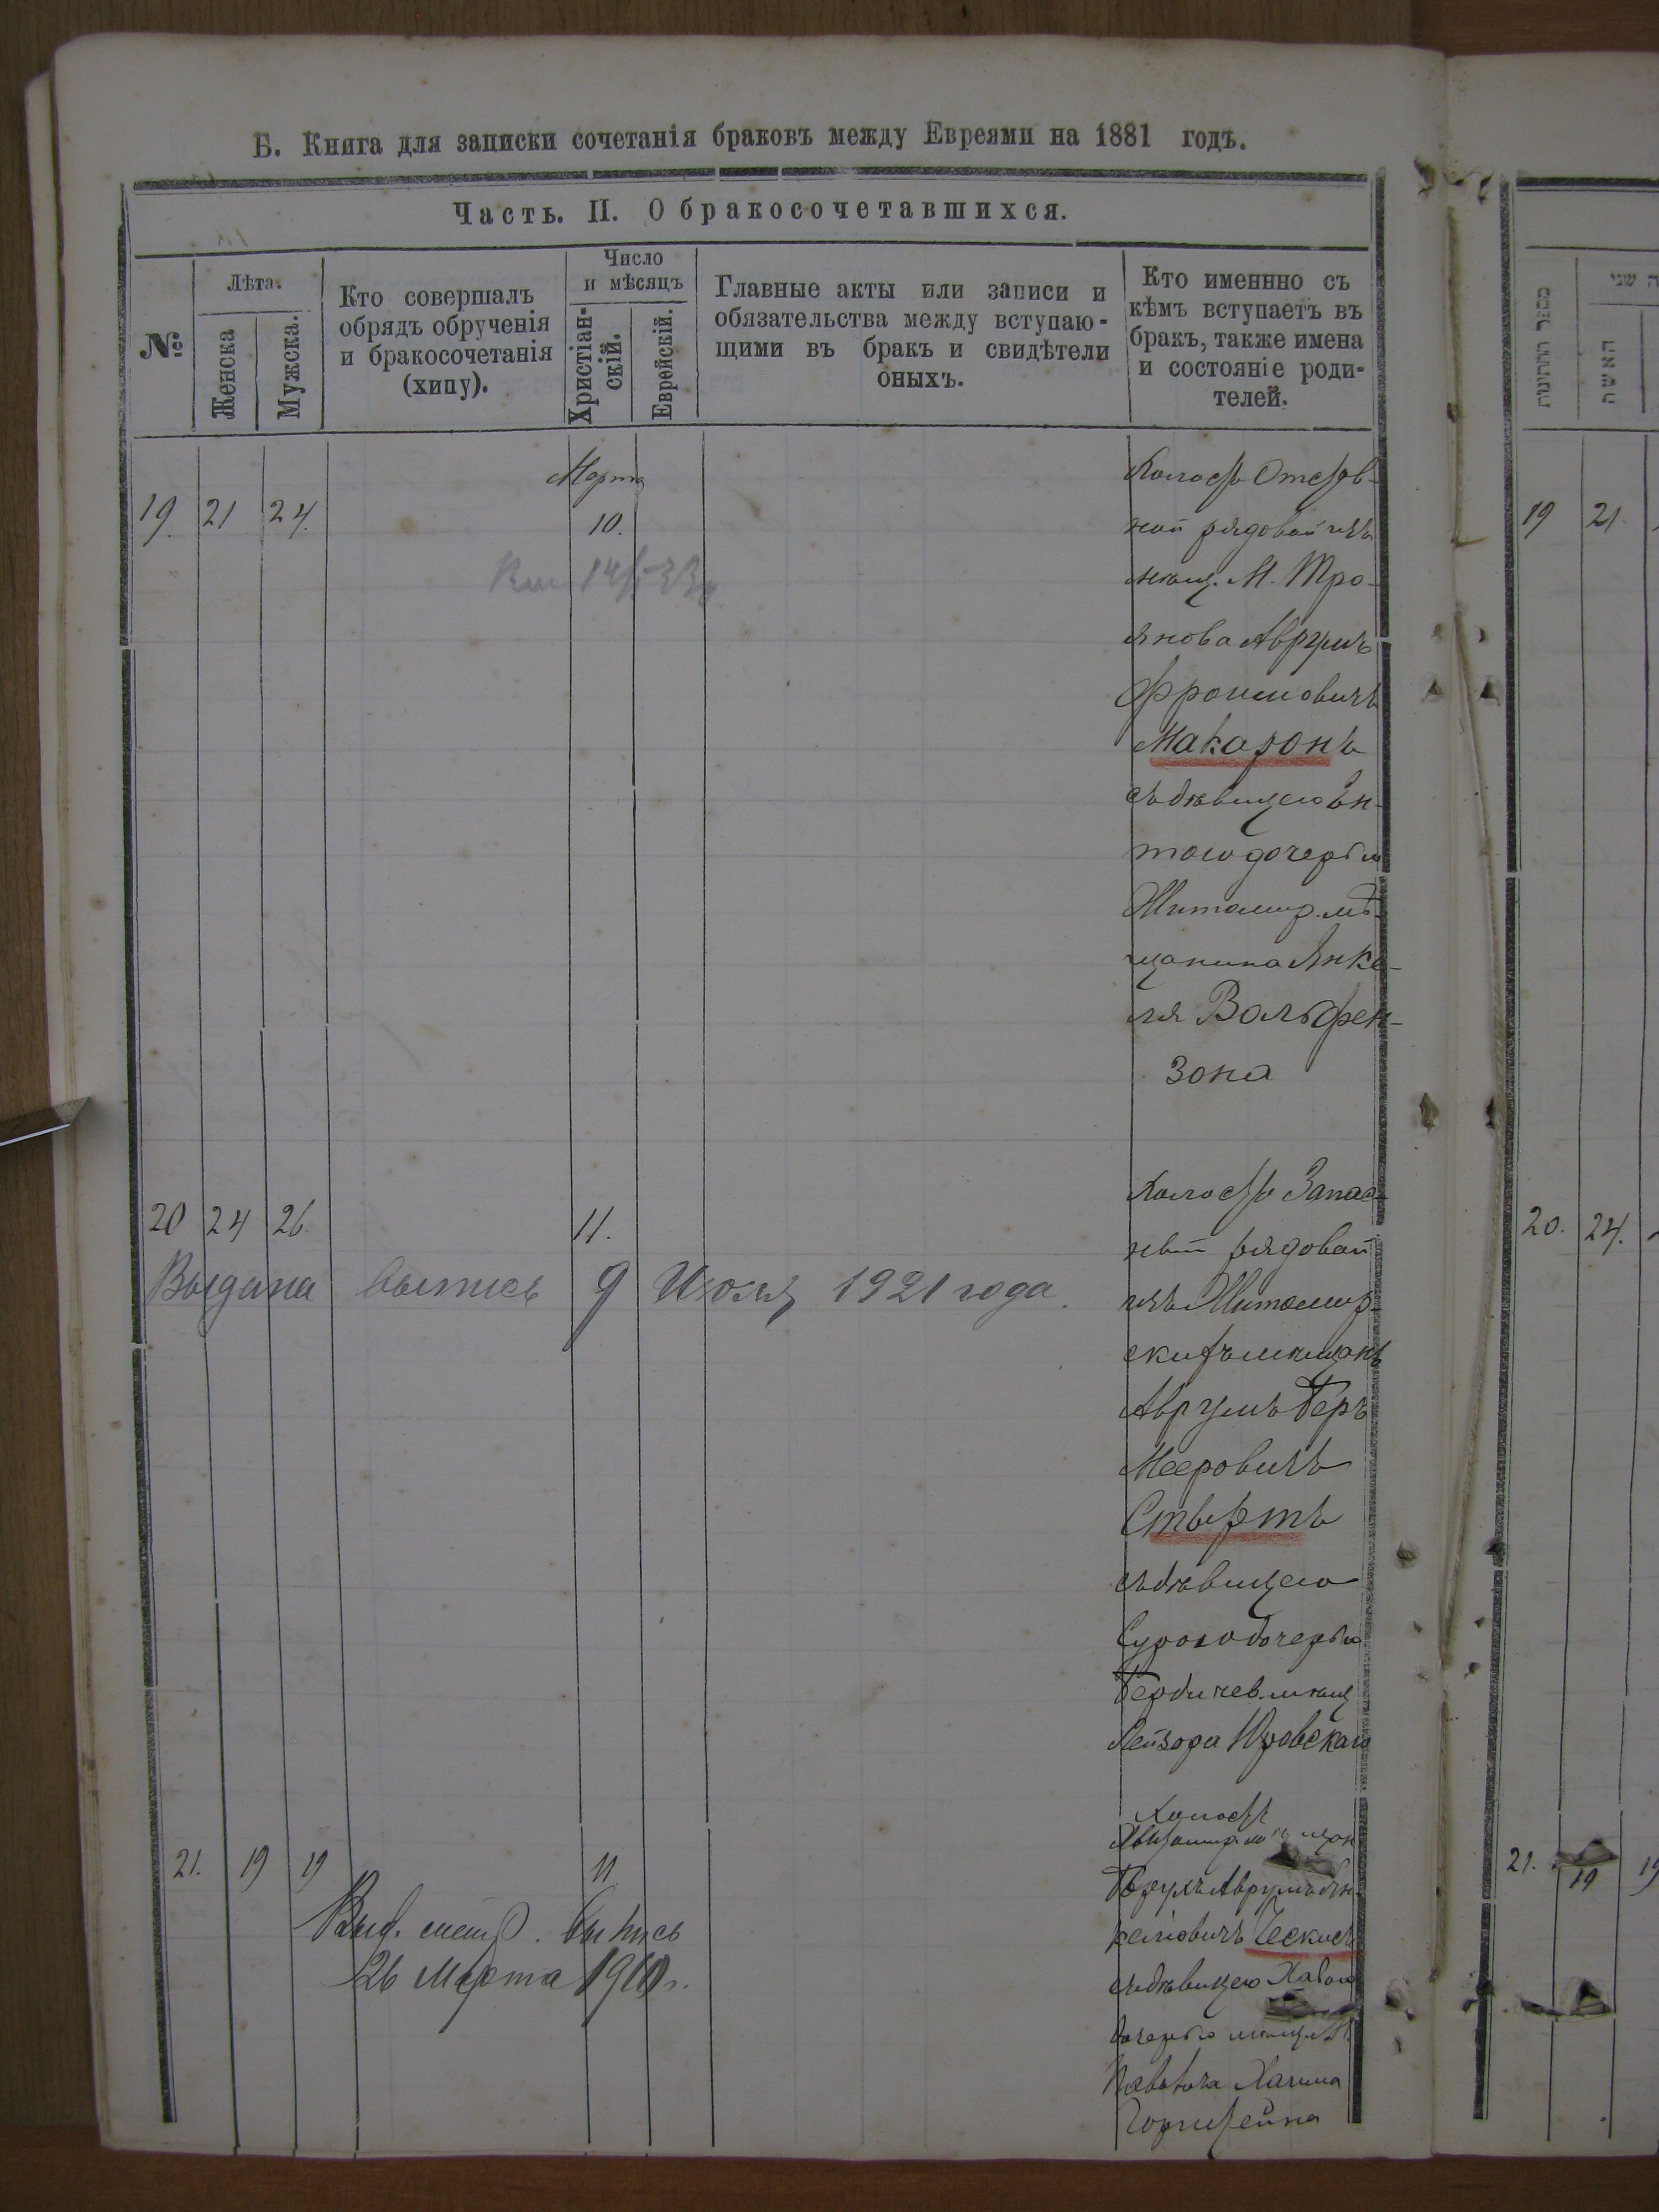 Б. Книга для записки сочетанія браковъ между Евреями на 1881 годъ.
Часть. II. О бракосочетавшихся.
№
Лѣта.
Женска
Мужска.
Кто совершалъ
обрядъ обрученія
и бракосочетанія
(хипу).
Число
и мѣсяцъ
Христіан-
скій.
Еврейскій.
Главные акты или записи и
обязательства между вступаю-
щими въ бракъ и свидѣтели
оныхъ.
Кто именнно съ
кѣмъ вступаетъ въ
бракъ, также имена
и состояніе роди-
телей.
19. 21 24.
Марта
10.
Холостъ Отстав-
ной рядовой изъ
мѣщ. М. Тро-
янова Аврумъ
Фроимовичъ
Макаронъ
съ дѣвицею Эн-
тою дочерью
Житомир. мѣ-
щанина Янке-
ля Вольфен-
зона
20 24 26.
11.
Выдана выпись 9 Июля 1921 года.
Холостъ Запас-
ный рядовой
изъ Житомир-
скихъ мѣщанъ
Аврумъ Беръ
Мееровичъ
Стыртъ
съ дѣвицею
Сурою дочерью
Бердичев. мѣщ
Лейзора Юровскаго
21. 19 19
11
Выд. метр. выпись
26 Марта 1910 г.
Холостъ
келовичъ
съ дѣвицею Хавою
дочерью
Хаима
19 21
20. 24.
21. 19 19